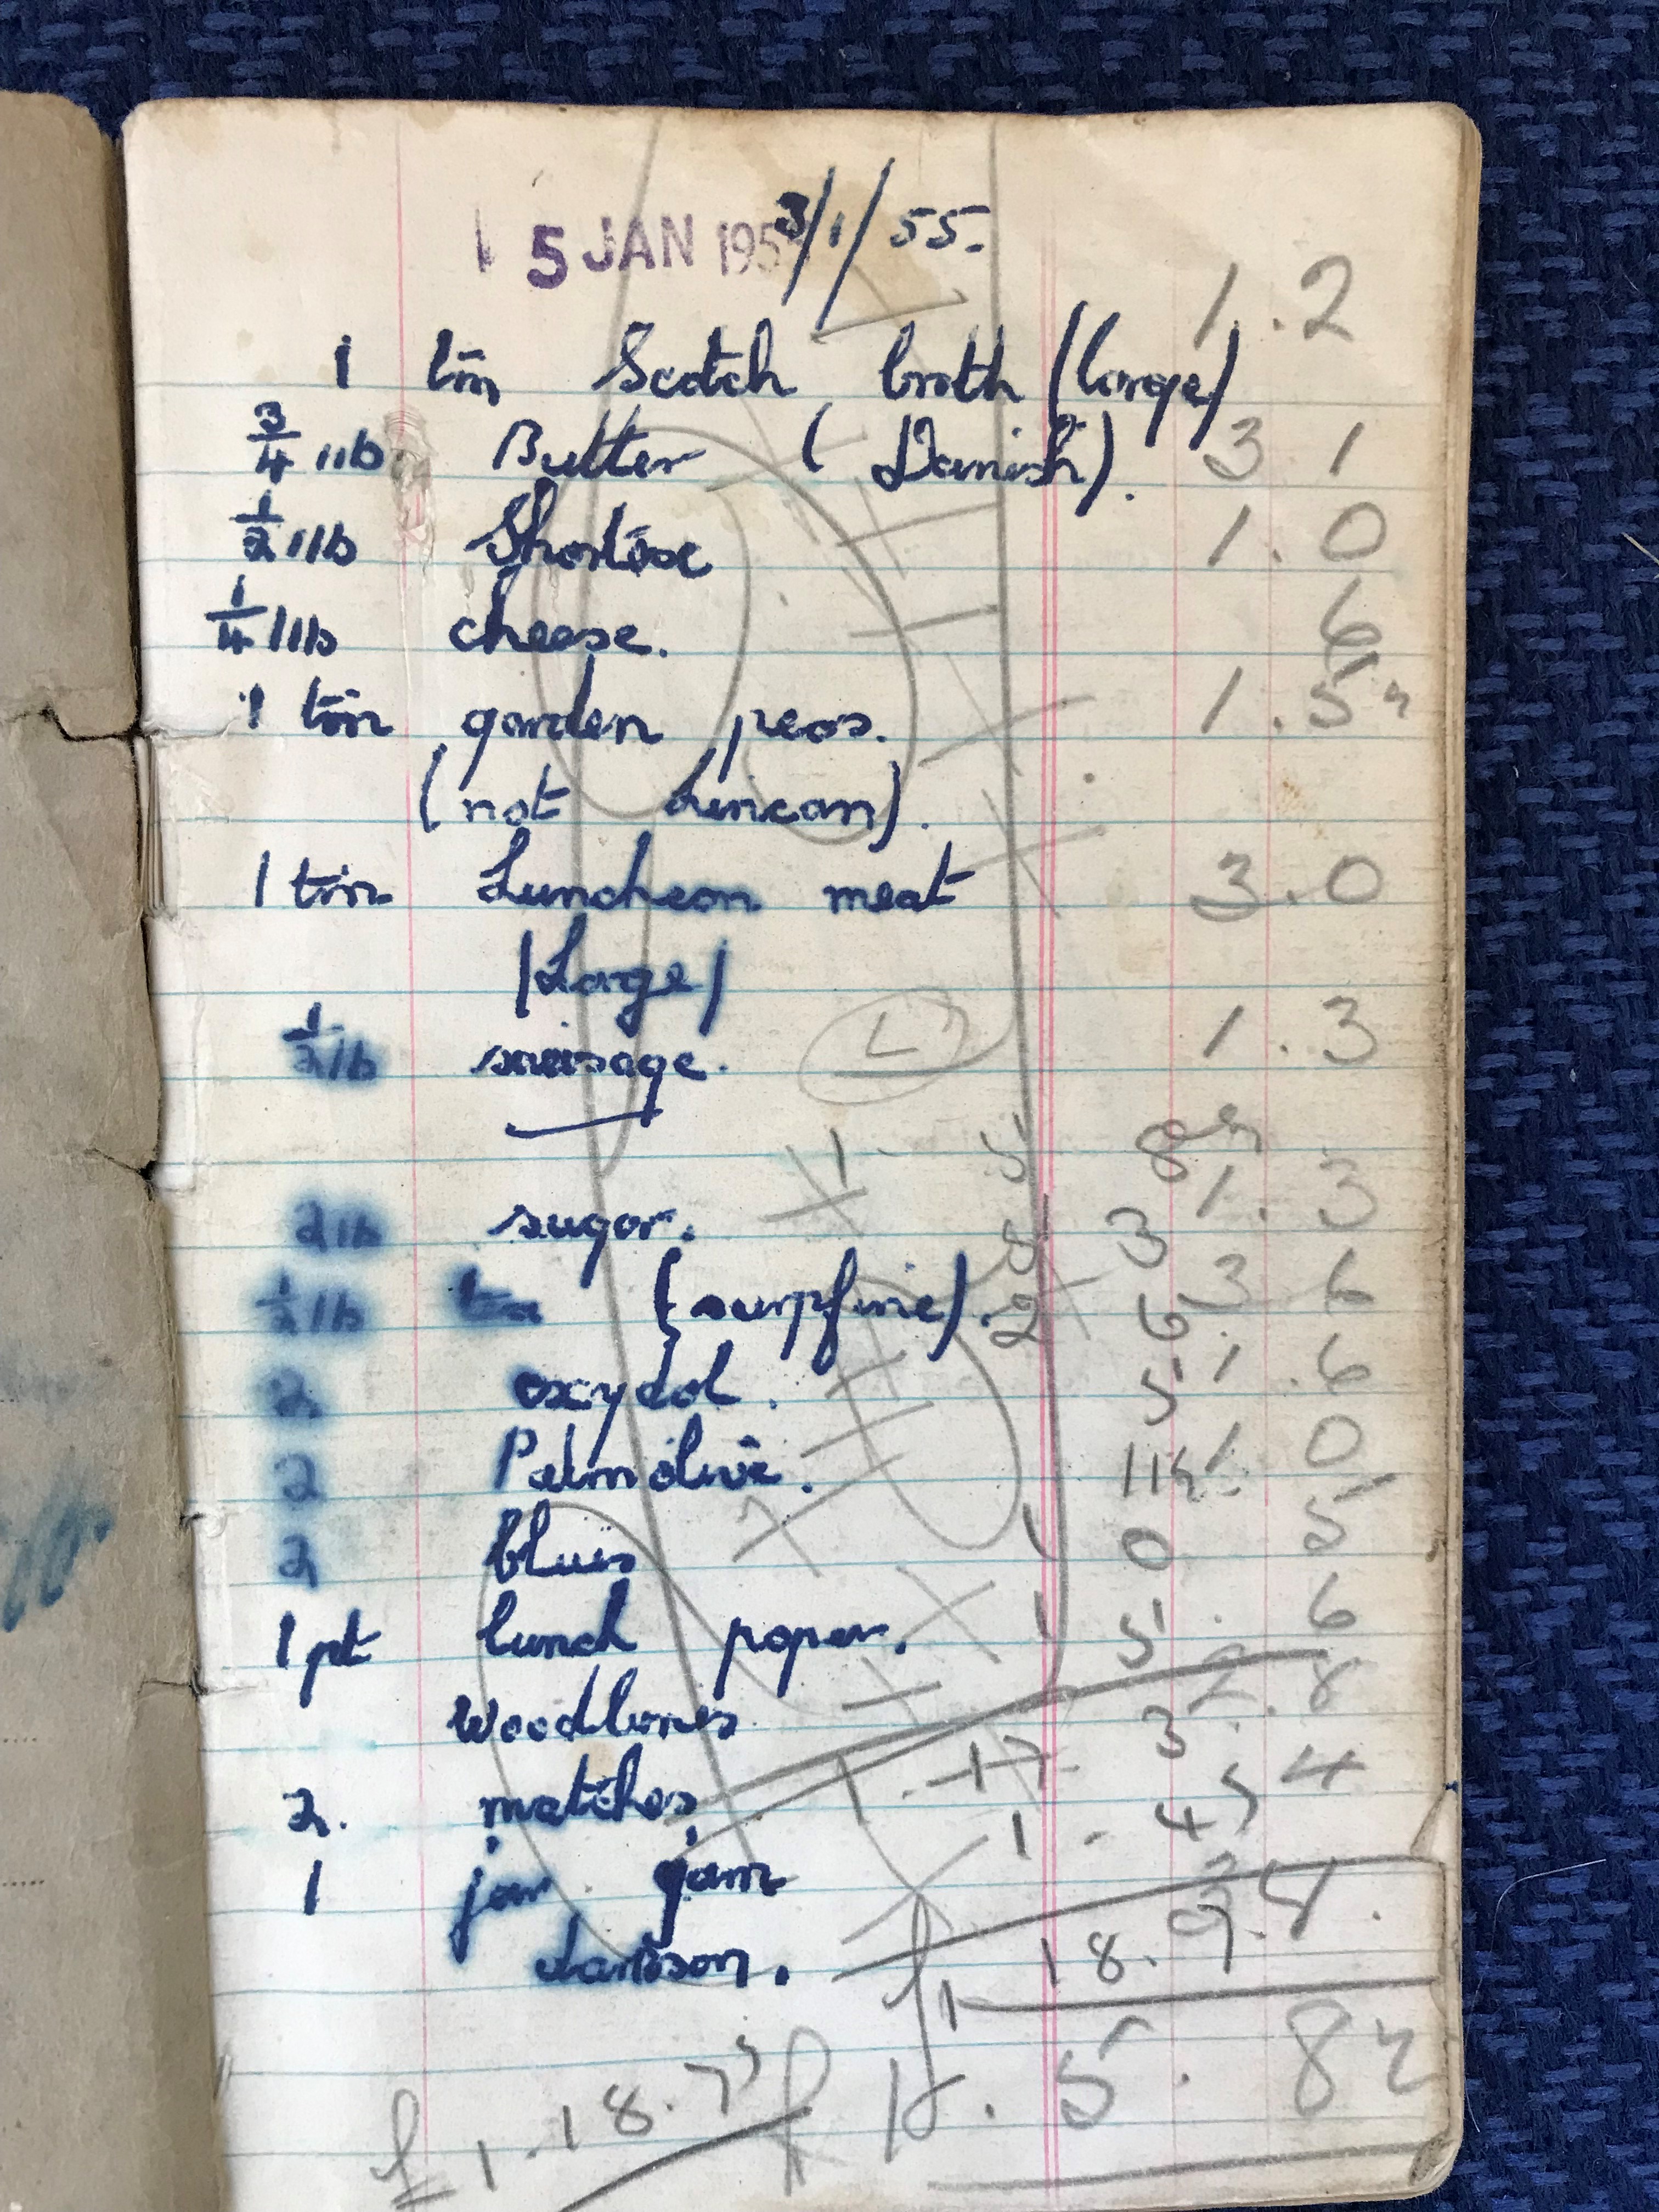 5 JAN 195 3/1/55.
1 tin Scotch broth (large) 1.2
3/4 lb. Butter (Danish). 3 1
1/2 lb 1.0
1/4 lb cheese. 6
1 tin garden peas. 1.5
(not Lincan).
1 tin Luncheon meat 3.0
(Large)
1/2 lb sausage. L 1.3
1. 5 8
2 lb sugar. 1.3
5 3
1/2 lb tea (surpfine). 3 6
2 6
2 oxydol. 1.6
5
2 Palmolive. 1.0
11
2 blues 5
1 0
1 pt lunch paper. 6
1 5
Woodbines 2.8
1.17 3
2. matches 4
1.4
1 jar jam
damson.
18.9
£1.18.7 £1.5.8